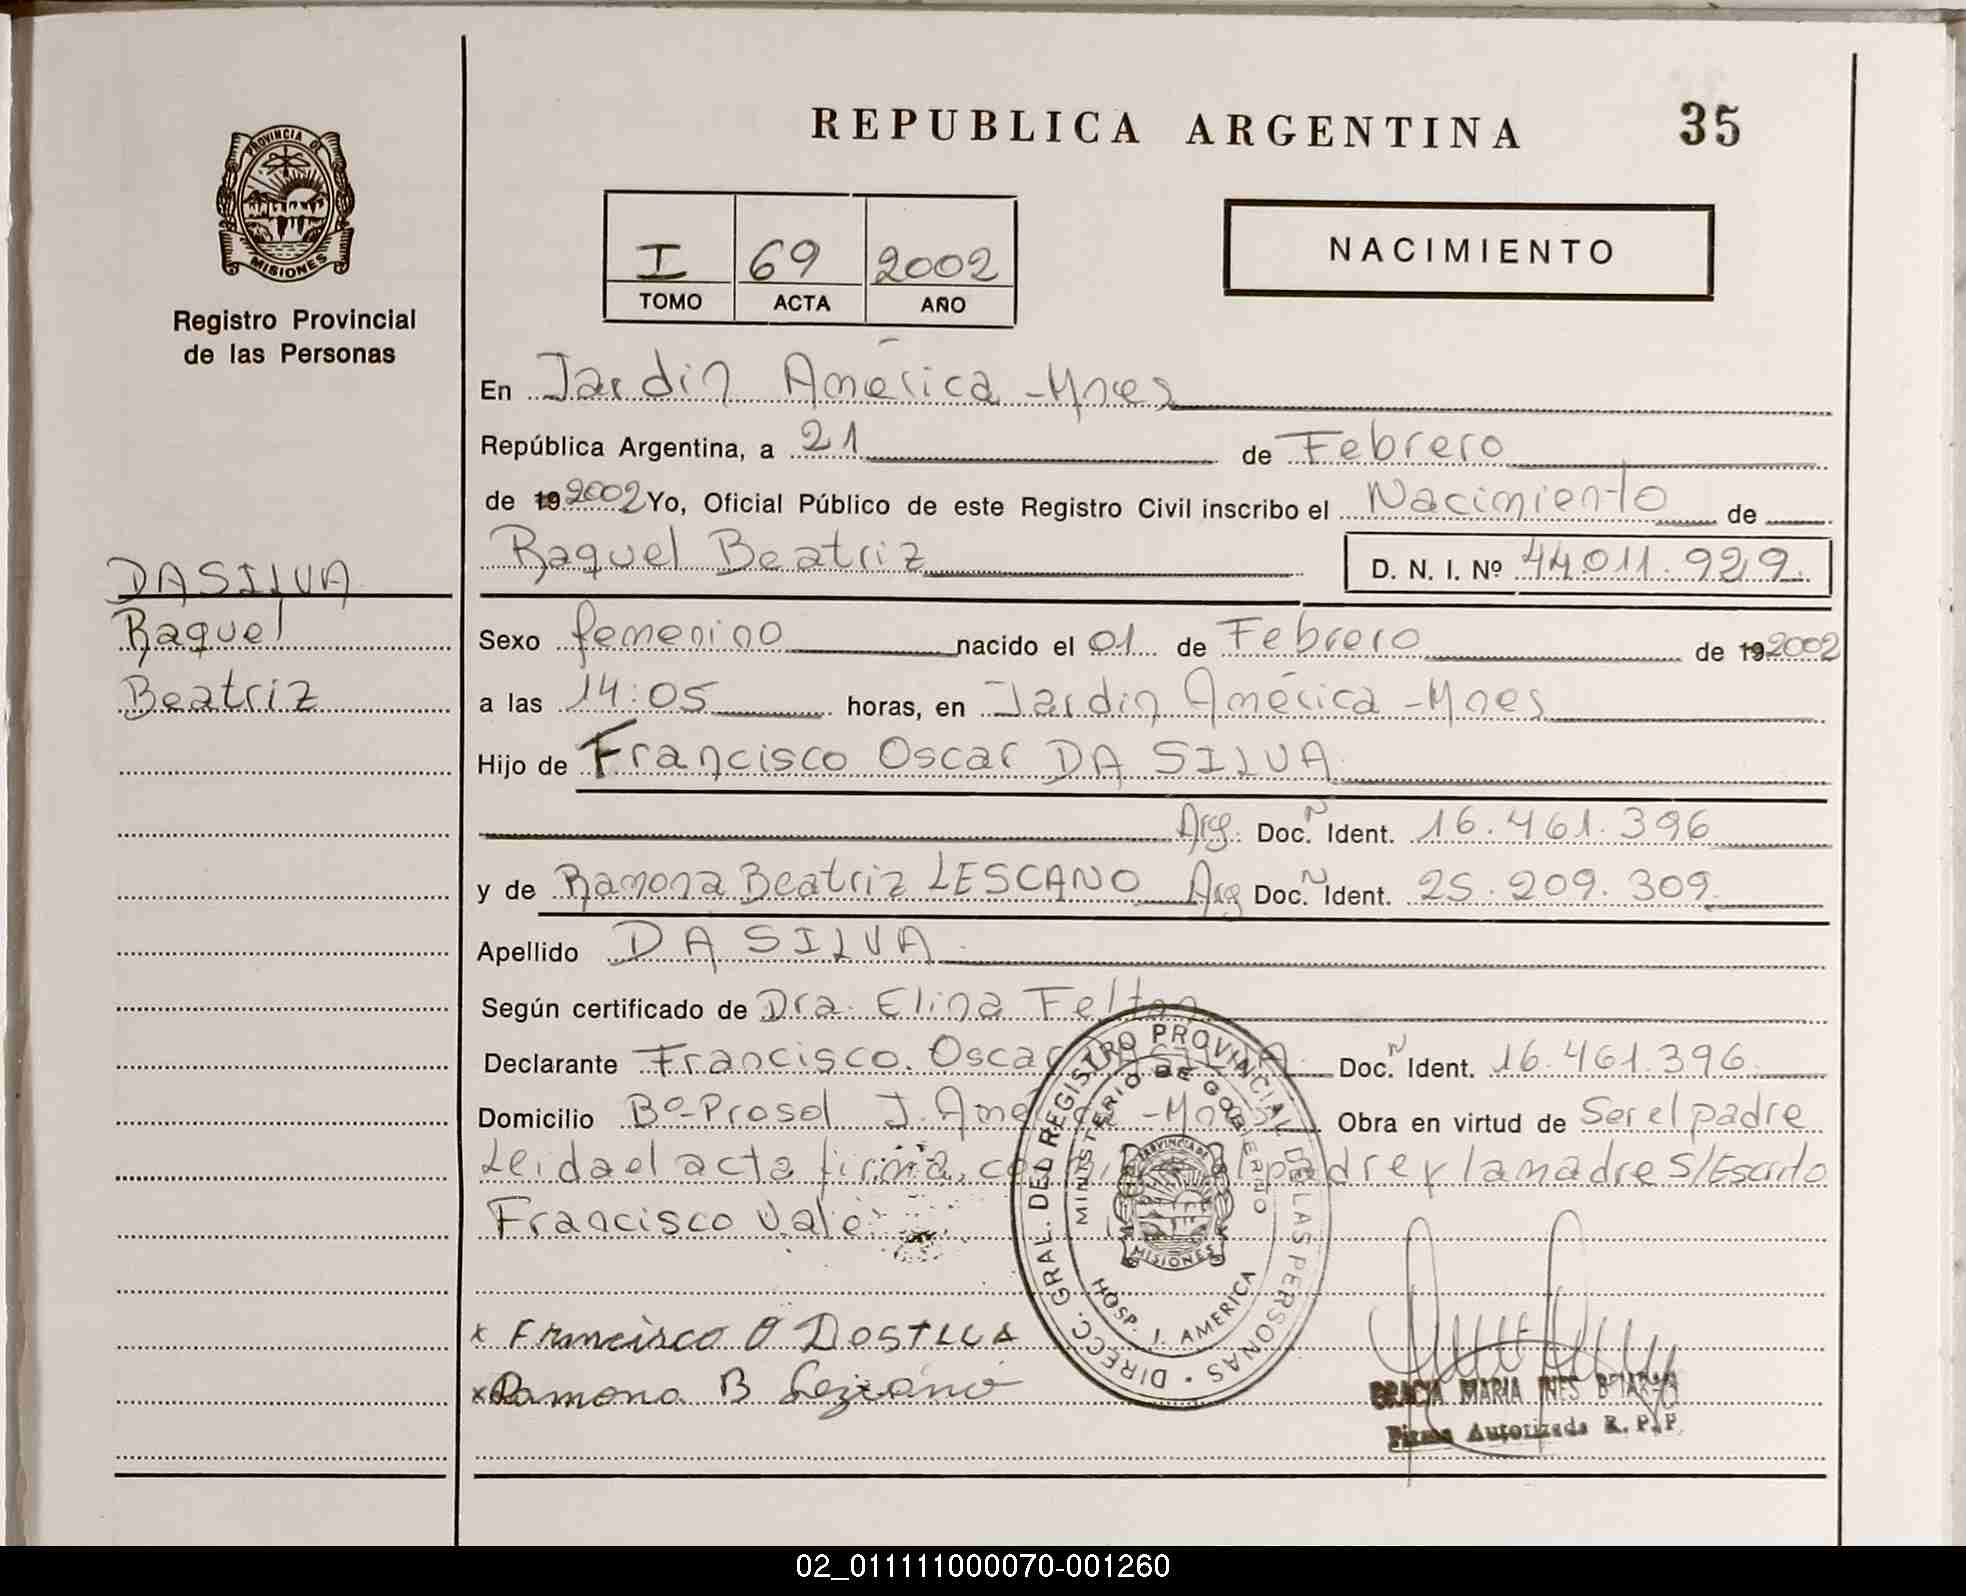 REPUBLICA ARGENTINA
35
PROVINCIA DE
MISIONES
Registro Provincial
de las Personas
I 69 2002
TOMO ACTA AÑO
NACIMIENTO
En Jardín América - Mnes
República Argentina, a 21 de Febrero
de 19 2002 Yo, Oficial Público de este Registro Civil inscribo el Nacimiento de
Raquel Beatriz D. N. I. Nº 44011.929.
DA SILVA
Raquel
Beatriz
Sexo femenino nacido el 01 de Febrero de 19 2002
a las 14:05 horas, en Jardin América - Mnes
Hijo de Francisco Oscar DA SILVA
Arg. Doc. N Ident. 16.461.396
y de Ramona Beatriz LESCANO Arg Doc. N Ident. 25.209.309.
Apellido DA SILVA
Según certificado de Dra. Elina
Declarante Francisco. Oscar DA SILVA Doc. N Ident. 16.461.396
Domicilio Bº-Prosol J. América - Mnes Obra en virtud de Ser el padre
Leida el acta firma, el padre y la madre S/Escrito
Francisco Vale
DIRECC. GRAL. DEL REGISTRO PROVINCIAL DE LAS PERSONAS
MINISTERIO DE GOBIERNO
PROVINCIA DE
MISIONES
HOSP. J. AMERICA
x Francisco O
x Ramona B
GRACIA MARIA INES
Firma Autorizada R. P. P.
02_011111000070-001260